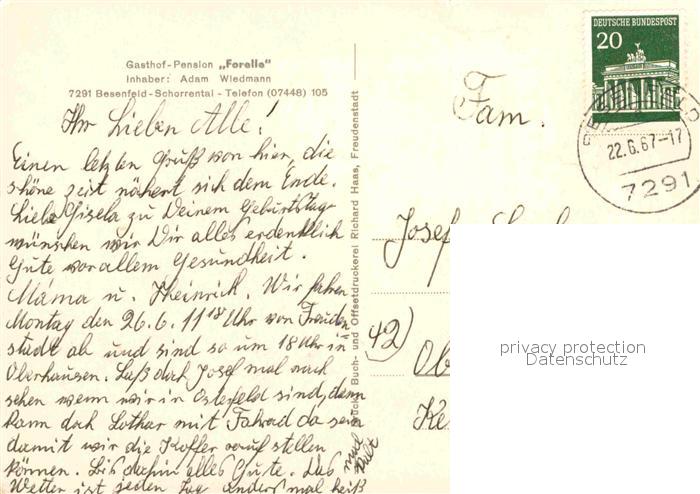 Gasthof-Pension „Forelle"
Inhaber: Adam Wiedmann
7291 Besenfeld-Schorrental - Telefon (07448) 105
Ihr Lieben Alle!
Einen letzten Gruß von hier, die
schöne Zeit nähert sich dem Ende.
Liebe Gisela zu Deinem Geburtstag
wünschen wir Dir alles erdenklich
Gute vor allem Gesundheit.
Mama u. Heinrich. Wir fahren
Montag den 26.6. 11 18 Uhr von Freuden
stadt ab und sind so um 18 Uhr in
Oberhausen. Laß doch Josef mal nach
sehen wenn wir in Osterfeld sind, dann
kann doch Lothar mit Fahrad da sein
damit wir die Koffer rauf stellen
können. Bis dahin alles Gute. Das
Wetter ist jeden Tag anders mal heiß
mal kalt
Buch- und Offsetdruckerei Richard Haas, Freudenstadt
DEUTSCHE BUNDESPOST
20
22.6.67-17
7291
Fam.
Josef
(42)
Ob
privacy protection
Datenschutz